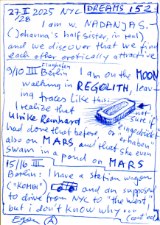 27-II 2025 NYC DREAMS 152
/28
I am w. NADAN) AS -
(Jehovna's half sister, in real)
and we discover that we find
each other erotically attractive
9/10 III Berlin I am on the MOON
walking in REGOLITH, leav-
ing traces like this:
I realize that
Ulrike Reinhard
had done that before or
also on MARS and that she even
swam in a pond on MARS
15/16 III
Berlin: I have a station wagon
("KOMBI") and am supposed
to drive from NYC to "the west"
but i don't know why ...